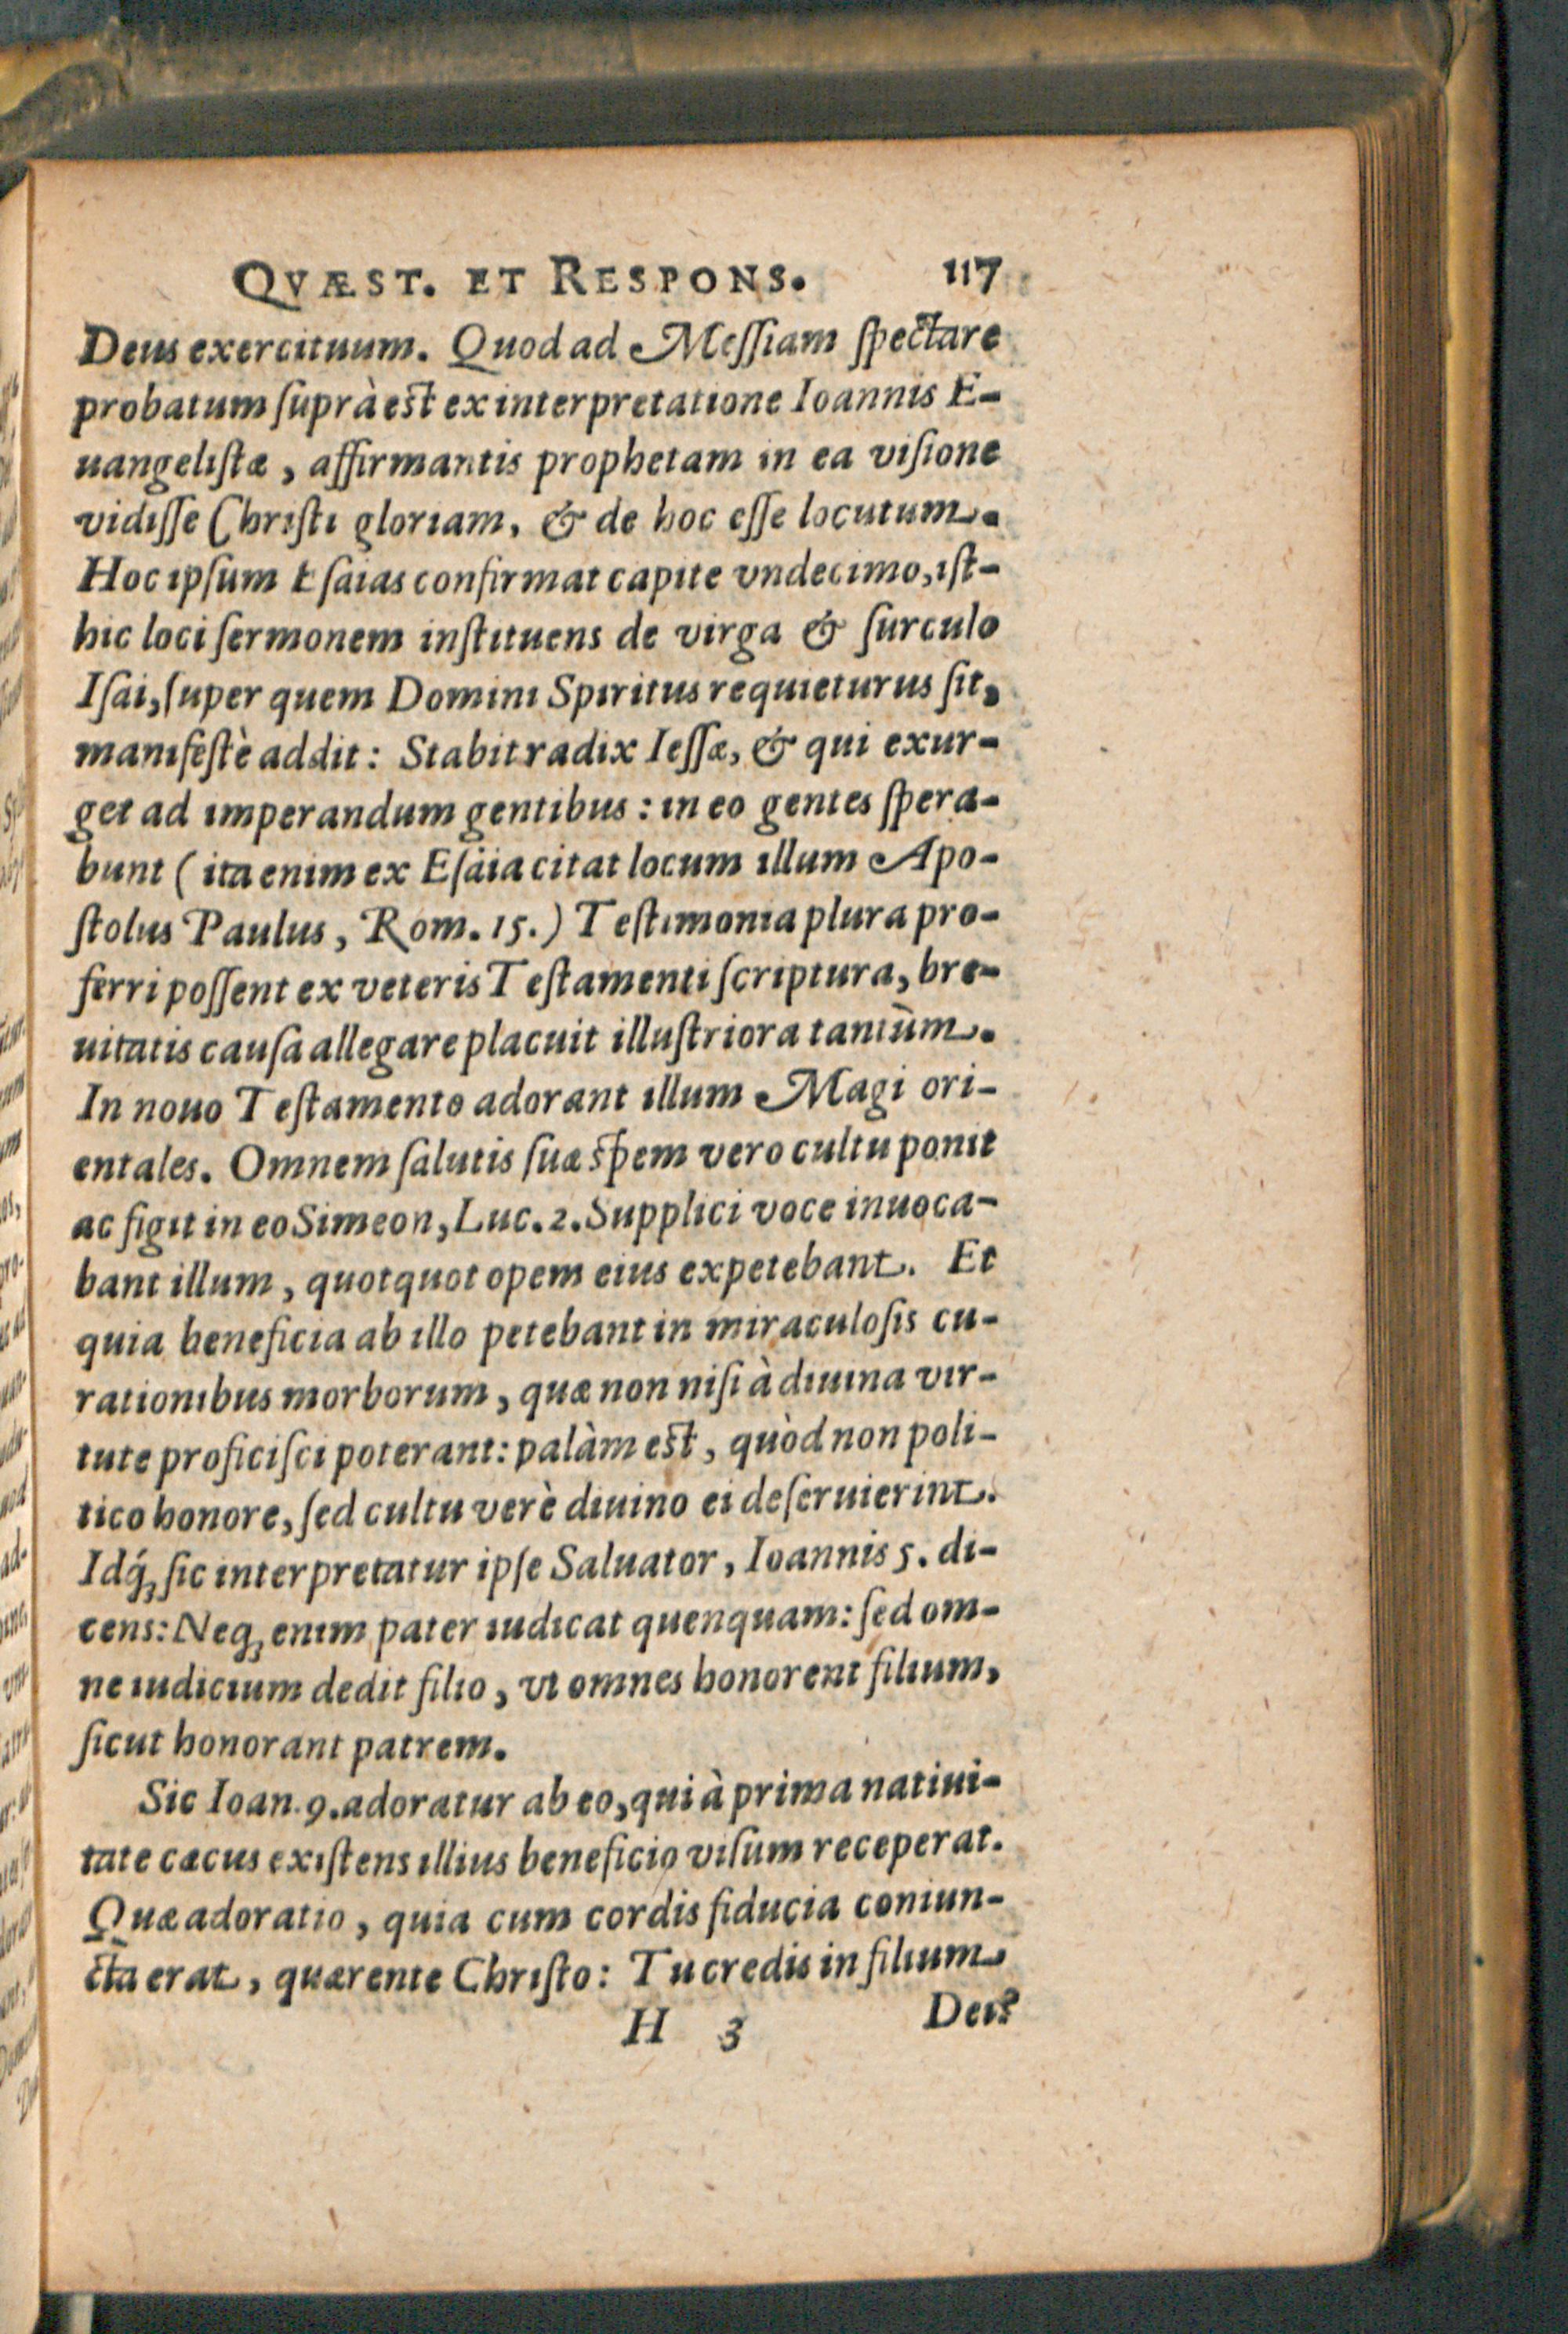 QVÆST. ET RESPONS. 117
Deus exercituum. Quod ad Meſſiam ſpectare
probatum ſuprà est ex interpretatione Ioannis E-
uangeliſtæ, affirmantis prophetam in ea viſione
vidiſſe Chriſti gloriam, & de hoc eſſe locutum.
Hoc ipſum Eſaias confirmat capite vndecimo, iſt-
hic loci ſermonem inſtituens de virga & ſurculo
Iſai, ſuper quem Domini Spiritus requieturus ſit,
manifeſtè addit: Stabit radix Ieſſæ, & qui exur-
get ad imperandum gentibus: in eo gentes ſpera-
bunt (ita enim ex Eſaia citat locum illum Apo-
ſtolus Paulus, Rom. 15.) Teſtimonia plura pro-
ferri poſſent ex veteris Teſtamenti ſcriptura, bre-
uitatis cauſa allegare placuit illuſtriora tantùm.
In nouo Teſtamento adorant illum Magi ori-
entales. Omnem ſalutis ſuæ spem vero cultu ponit
ac figit in eo Simeon, Luc. 2. Supplici voce inuoca-
bant illum, quotquot opem eius expetebant. Et
quia beneficia ab illo petebant in miraculoſis cu-
rationibus morborum, quæ non niſi à diuina vir-
tute proficiſci poterant: palàm est, quòd non poli-
tico honore, ſed cultu verè diuino ei deſeruierint.
Idq́ꝫ ſic interpretatur ipſe Saluator, Ioannis 5. di-
cens: Neqꝫ enim pater iudicat quenquam: ſed om-
ne iudicium dedit filio, vt omnes honorent filium,
ſicut honorant patrem.
Sic Ioan. 9. adoratur ab eo, qui à prima natiui-
tate cæcus exiſtens illius beneficio viſum receperat.
Quæ adoratio, quia cum cordis fiducia coniun-
cta erat, quærente Chriſto: Tu credis in filium
H 3 Dei?